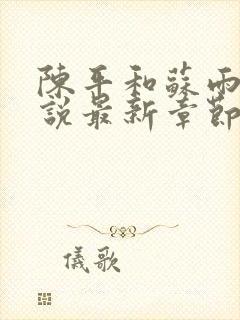 陳平和蘇雨
說最新章節
儀歌